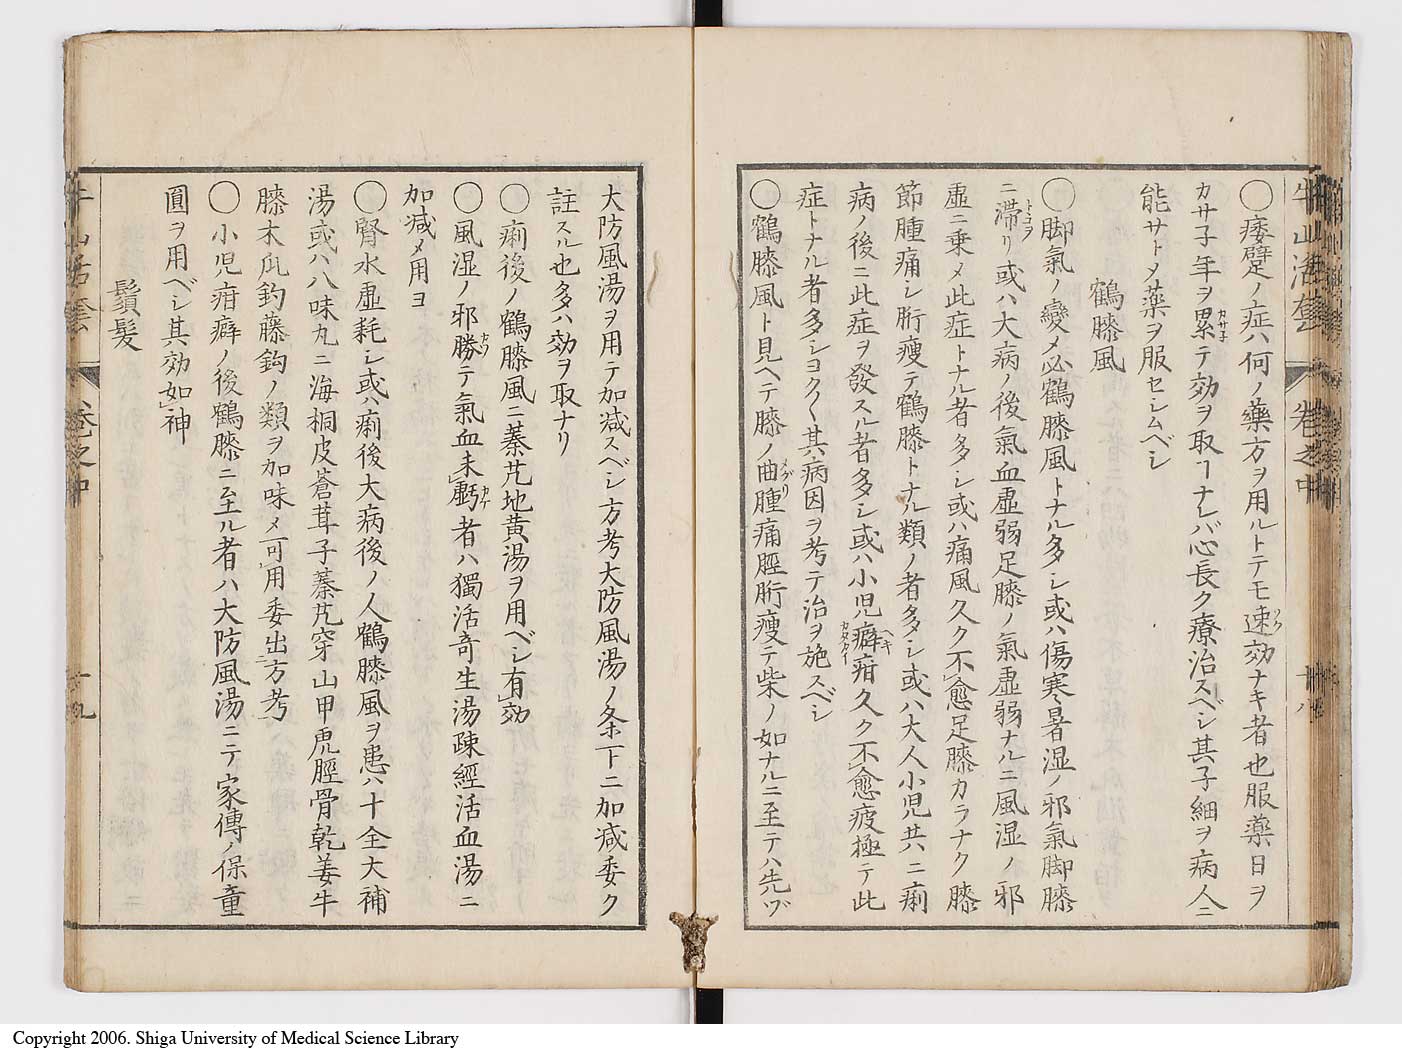 牛山活套 卷之中 十八
〇痿躄ノ症ハ何ノ藥方ヲ用ルトテモ速効ナキ者也服薬日ヲ
カサ子年ヲ累テ効ヲ取ヿナレバ心長ク療治スベシ其子細ヲ病人ニ
能サトメ藥ヲ服セシムベシ
鶴膝風
〇脚氣ノ變メ必鶴膝風トナル多シ或ハ傷寒暑湿ノ邪氣脚膝
ニ滞リ或ハ大病ノ後氣血虚弱足膝ノ氣虚弱ナルニ風湿ノ邪
虚ニ乗メ此症トナル者多シ或ハ痛風久ク不愈足膝カラナク膝
節腫痛シ胻痩テ鶴膝トナル類ノ者多シ或ハ大人小児共ニ痢
病ノ後ニ此症ヲ發スル者多シ或ハ小児癖疳久ク不愈疲極テ此
症トナル者多シヨク〱其病因ヲ考テ治ヲ施スベシ
〇鶴膝風ト見ヘテ膝ノ曲腫痛脛胻痩テ柴ノ如ナルニ至テハ先ヅ
大防風湯ヲ用テ加減スベシ方考大防風湯ノ条下ニ加減委ク
註スル也多ハ効ヲ取ナリ
〇痢後ノ鶴膝風ニ蓁艽地黄湯ヲ用ベシ有効
〇風湿ノ邪勝テ氣血未虧者ハ獨活寄生湯疎經活血湯ニ
加减メ用ヨ
〇腎水虚耗シ或ハ痢後大病後ノ人鶴膝風ヲ患ハ十全大補
湯或ハ八味丸ニ海桐皮蒼茸子蓁艽穿山甲虎脛骨乾姜牛
膝木瓜釣藤鈎ノ類ヲ加味メ可用委出方考ニ
〇小児疳癖ノ後鶴膝ニ至ル者ハ大防風湯ニテ家傳ノ保童
圓ヲ用ベシ其効如神
鬚髪
牛山活套 卷之中 十九
Copyright 2006. Shiga University of Medical Science Library